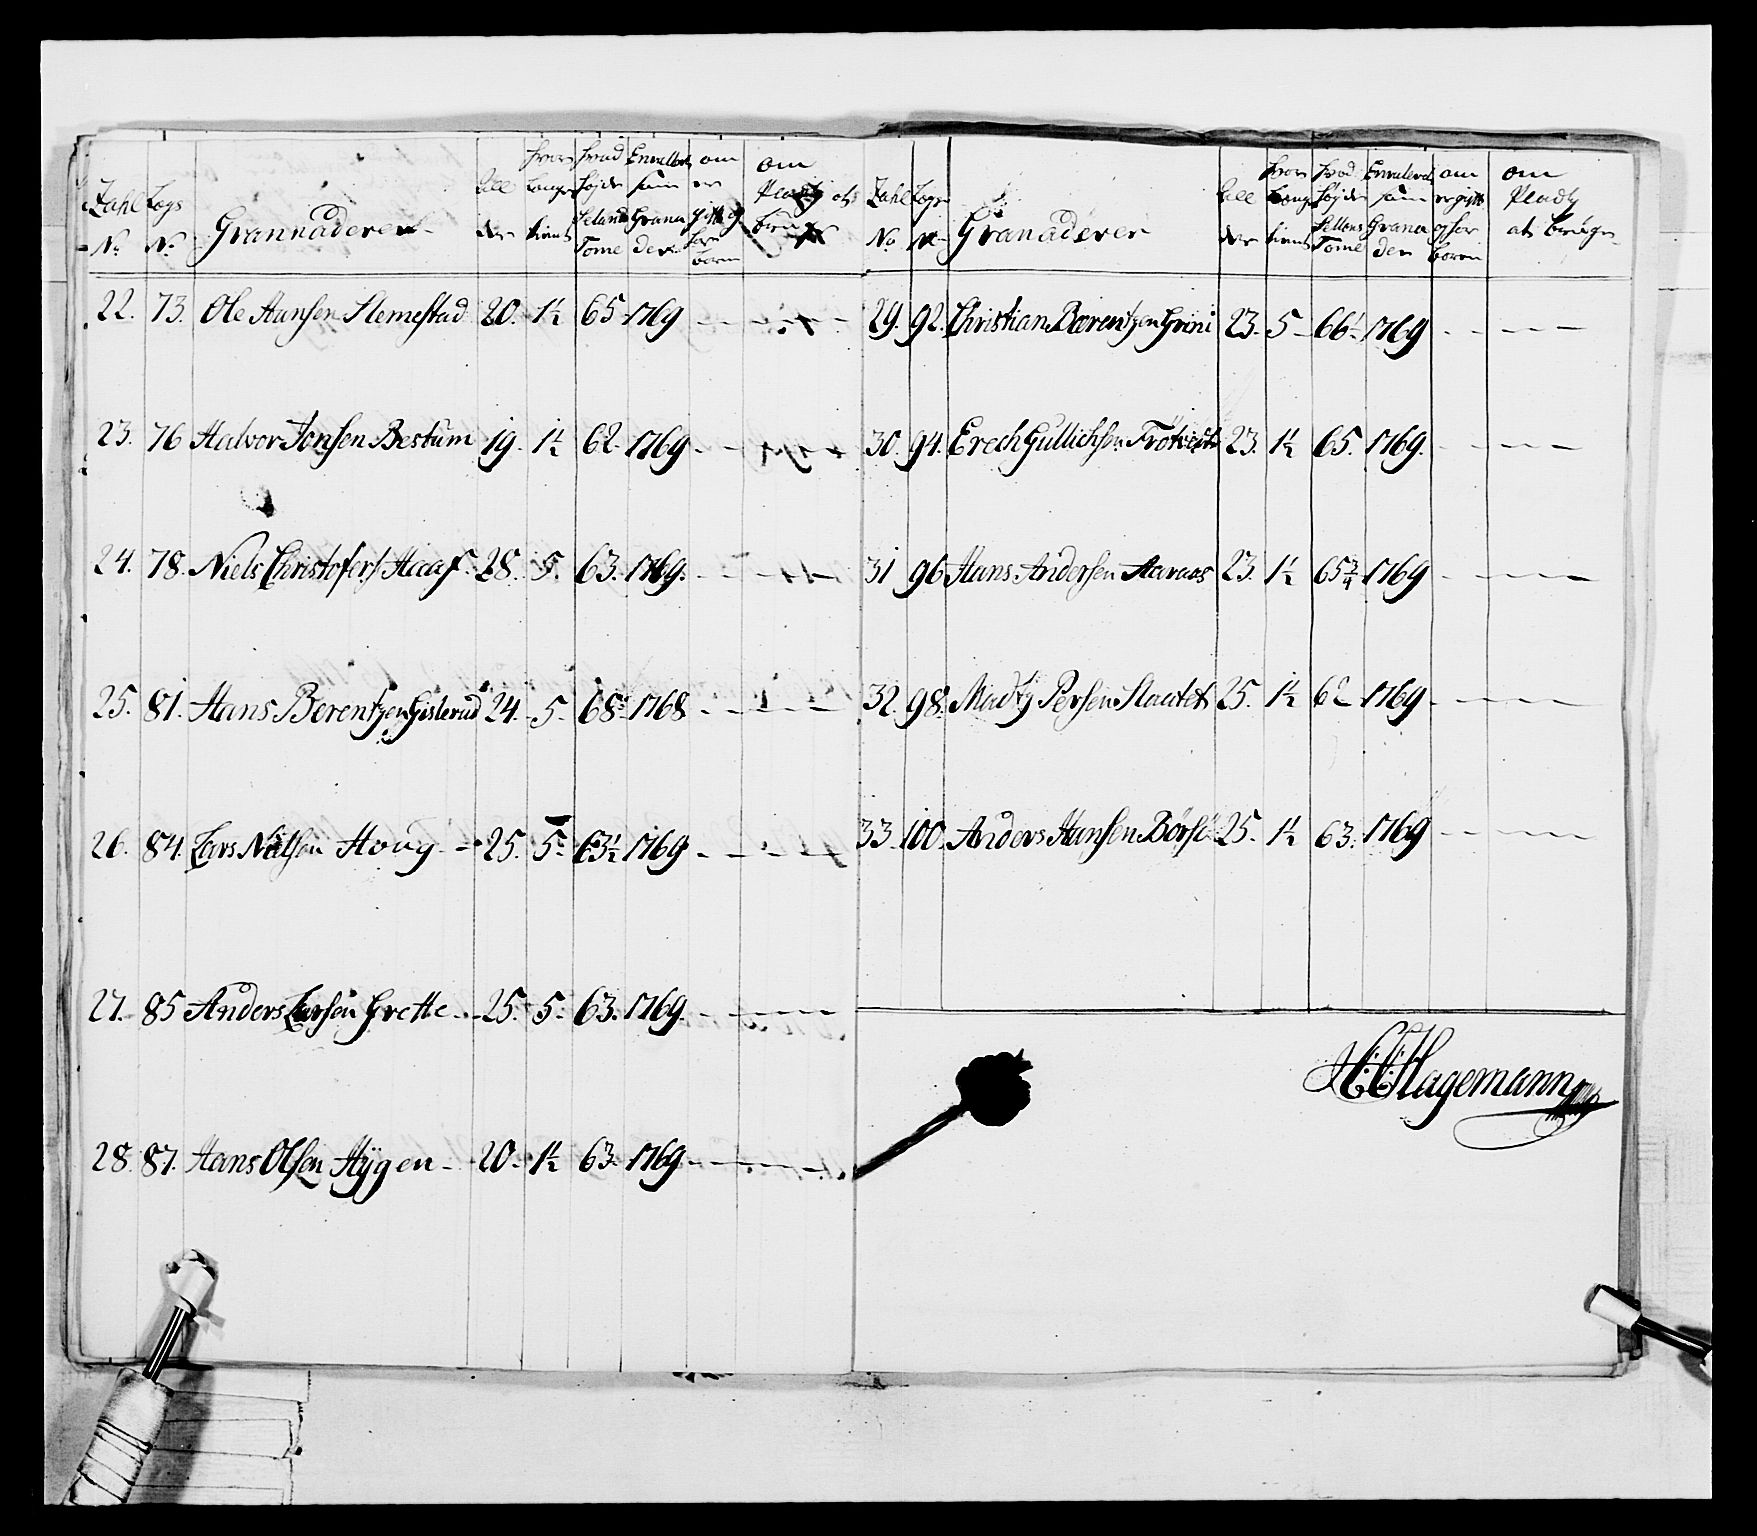 Zahl No
Lægs No
Grannaderer
Allder
hvor Længe tient
hvad Højde Tome
som Granader
om er gift og har børn
om Pladtz at
22. 73. Ole Hansen Slemestad 20. 1½ 65 1769 - - - -
23. 76 Halvor Jonsen Bestum 19. 1½ 62 1769. - - -
24. 78. Niels Christofers Haaf. 28. 5. 63. 1769. - - - -
25. 81. Hans Berentzen Gislerud 24. 5. 68. 1768 - - - -
26. 84. Lars Nielsen Houg - 25. 5. 63½ 1769 - - - -
27. 85 Anders Larsen Grette - 25. 5. 63. 1769. - - - -
28. 87. Hans Olsen Hÿgen - 20. 1½ 63. 1769. - - - -
Zahl No
Granaderer
Allder
hvor Længe tient
hvad Højde Tome
som Granader
om er gift og har børn
om Pladtz at bruge
29. 92. Christian Berentzen Grini 23. 5 - 66½ 1769 - - - - -
30. 94. Erech Gullichsen 23. 1½ 65. 1769. - - - - -
31 96 Hans Andersen Aaraas 23. 1½ 65¾ 1769 - - - - -
32. 98. Madtz Persen Staatet 25. 1½ 62 1769 - - - - -
33. 100. Anders Hansen Börse 25. 1½ 63. 1769 - - - - -
Hagemann